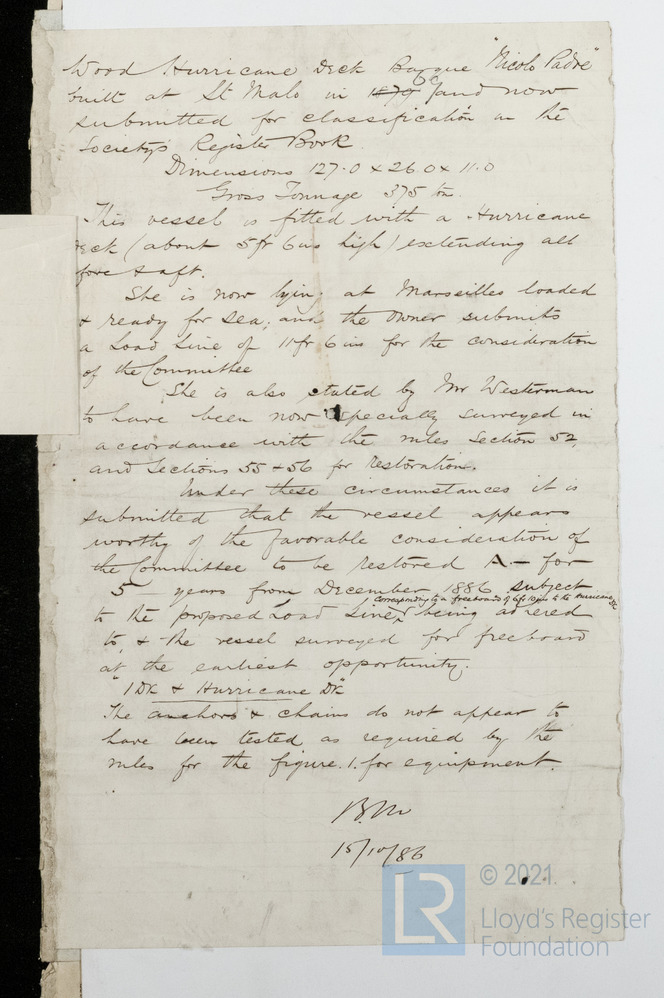 Wood Hurricane Deck Barque "Nicolo Padre"
built at St Malo in 1879 66 and now
submitted for classification in the
Society's Register Book.
Dimensions 127.0 x 26.0 x 11.0
Gross Tonnage 375 tns
This vessel is fitted with a Hurricane
Deck (about 5ft 6ins high) extending all
fore & aft.
She is now lying at Marseilles loaded
& ready for sea; and the owner submits
a Load Line of 11ft 6ins for the consideration
of the Committee
She is also stated by Mr Westerman
to have been now specially surveyed in
accordance with the rules Section 52,
and Sections 55 & 56 for restoration.
Under these circumstances it is
submitted that the vessel appears
worthy of the favorable consideration of
the Committee to be restored A - for
5 years from December 1886 subject
corresponding to a freeboard of to the Hurricane Dk
to the proposed Load Line being adhered
to, & the vessel surveyed for freeboard
at the earliest opportunity.
"1 Dk & Hurricane Dk"
The anchors & chains do not appear to
have been tested as required by the
rules for the figure .1. for equipment.
B.M
15/10/86
© 2021
LR
Lloyd's Register
Foundation